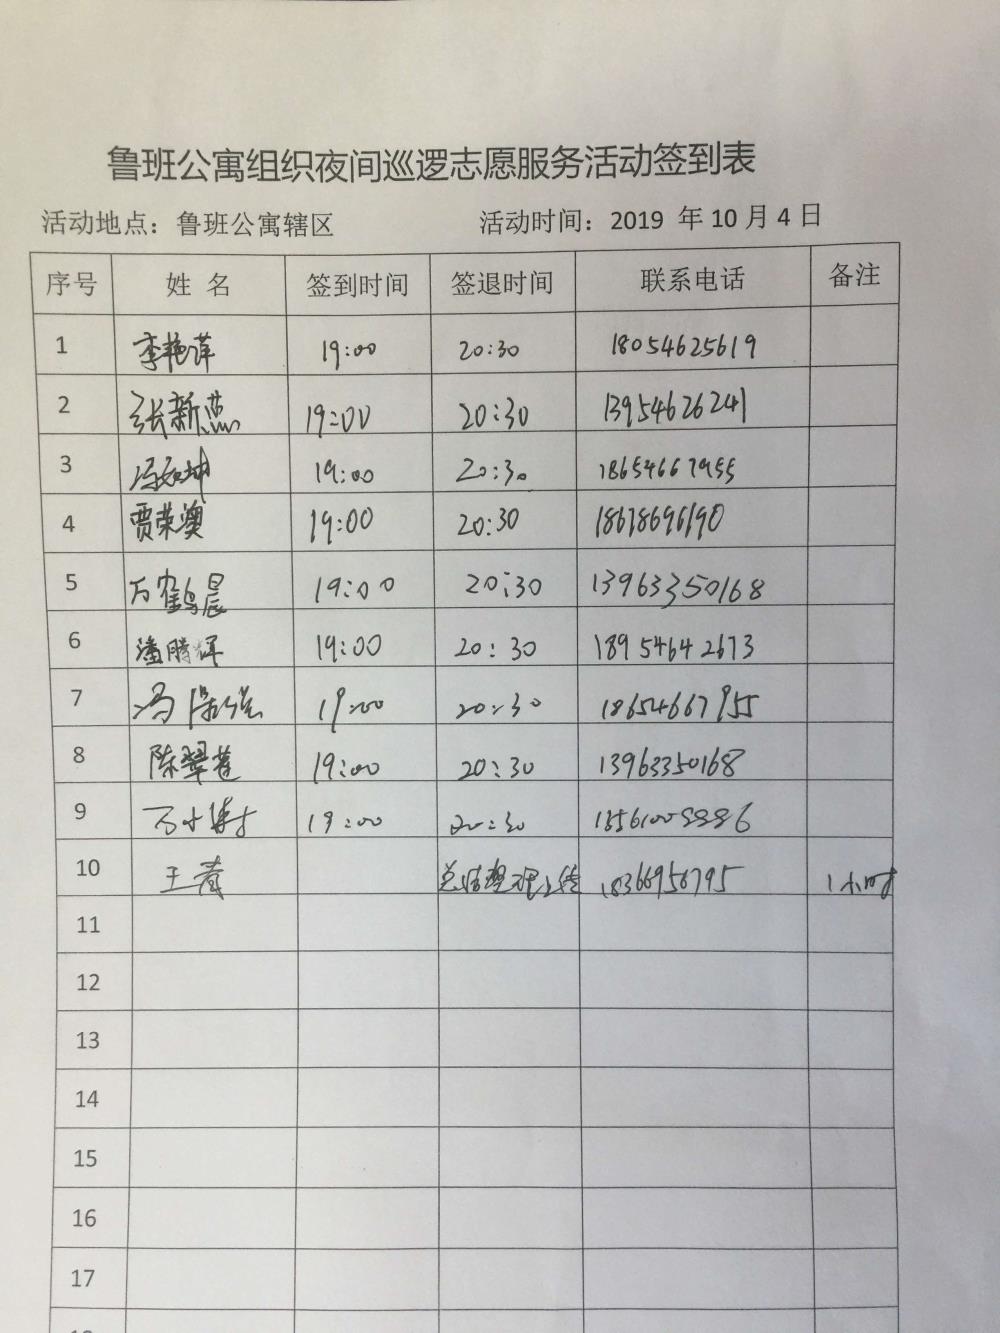 鲁班公寓组织夜间巡逻志愿服务活动签到表
活动地点：鲁班公寓辖区 活动时间：2019 年 10 月 4 日
序号 姓 名 签到时间 签退时间 联系电话 备注
1 李艳萍 19:00 20:30 18054625619
2 张新燕 19:00 20:30 13954626241
3 19:00 20:30 18654667955
4 贾荣澳 19:00 20:30 18678696190
5 万鹤晨 19:00 20:30 13963350168
6 潘腾辉 19:00 20:30 18954642673
7 冯保 19:00 20:30 18654667955
8 陈翠莲 19:00 20:30 13963350168
9 万小 19:00 20:30
10 王 总结整理上传 18366958795 1小时
11
12
13
14
15
16
17